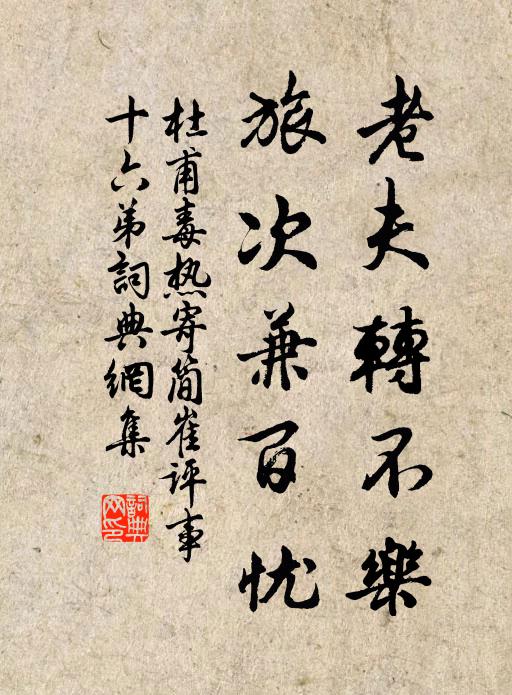 老夫轉不樂
旅次兼百忧
杜甫毒热寄簡崔評事
十六弟詞典網集
詞典
网印